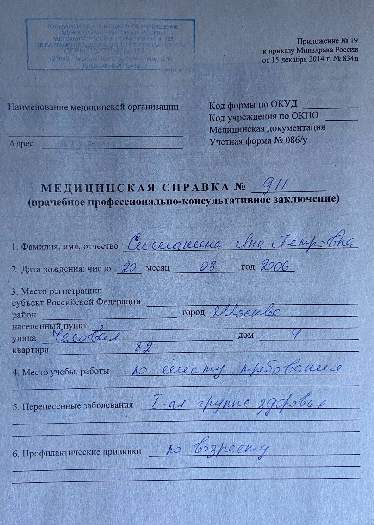 Приложение № 19
к приказу Минздрава России
от 15 декабря 2014 г. № 834н
Наименование медицинской организации
Код формы по ОКУД
Код учреждения по ОКПО
Медицинская документация
Адрес
Учетная форма № 086/у
МЕДИЦИНСКАЯ СПРАВКА № 911
(врачебное профессионально-консультативное заключение)
1. Фамилия, имя, отчество Петровна
2. Дата рождения: число 20 месяц 08 год 2006
3. Место регистрации:
субъект Российской Федерации
район город Москва
населенный пункт
улица Часовая дом 4
квартира 82
4. Место учебы, работы по месту требования
5. Перенесенные заболевания I-ая группа здоровья
6. Профилактические прививки по возрасту